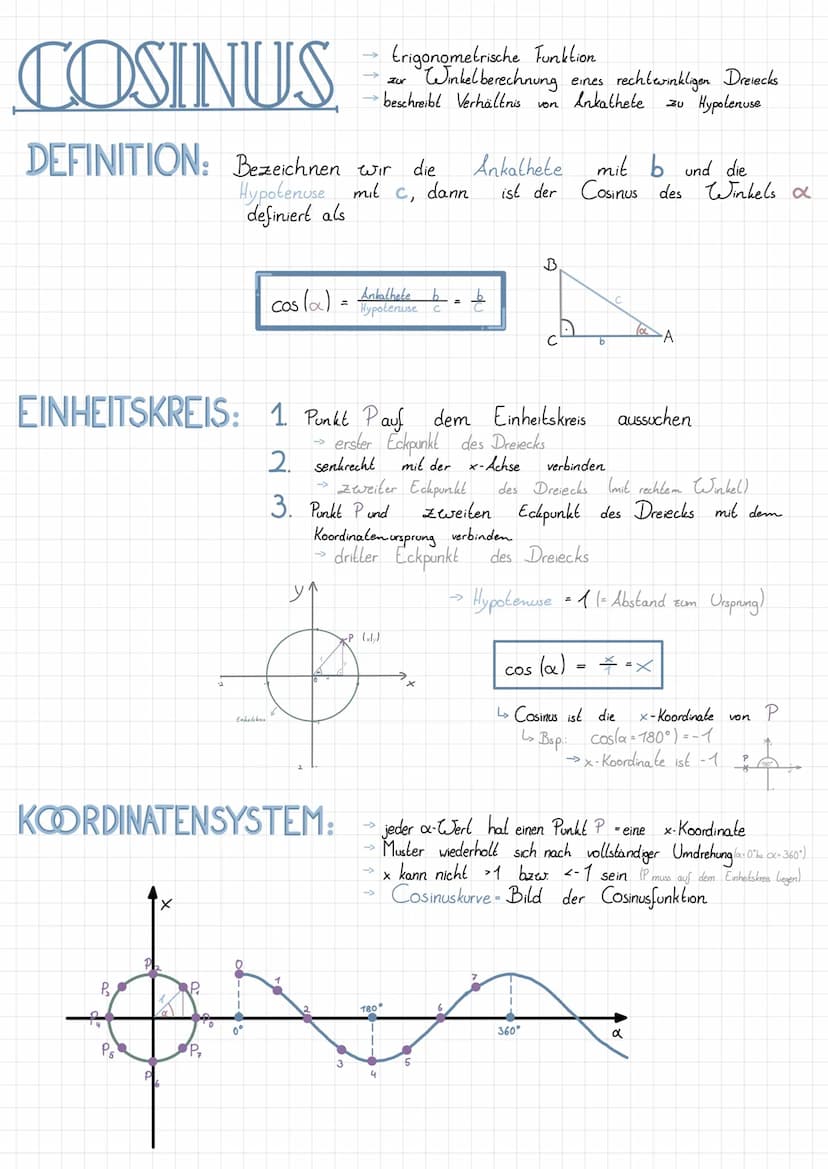 COSINUS
→ trigonometrische Funktion
→ zur Winkelberechnung eines rechtwinkligen Dreiecks
→ beschreibt Verhältnis von Ankathete zu Hypotenuse
DEFINITION: Bezeichnen wir die Ankathete mit b und die
Hypotenuse mit c, dann ist der Cosinus des Winkels α
definiert als
cos(α) = Ankathete b / Hypotenuse c = b/c
B
c
C b α A
EINHEITSKREIS: 1. Punkt P auf dem Einheitskreis aussuchen
→ erster Eckpunkt des Dreiecks
2. senkrecht mit der x-Achse verbinden
→ zweiter Eckpunkt des Dreiecks (mit rechtem Winkel)
3. Punkt P und zweiten Eckpunkt des Dreiecks mit dem
Koordinatenursprung verbinden
→ dritter Eckpunkt des Dreiecks
y
→ Hypotenuse = 1 (= Abstand zum Ursprung)
P
x
cos(α) = x/1 = x
Einheitskreis
↳ Cosinus ist die x-Koordinate von P
↳ Bsp.: cos(α = 180°) = -1
→ x-Koordinate ist -1
P
KOORDINATENSYSTEM:
→ jeder α-Wert hat einen Punkt P = eine x-Koordinate
→ Muster wiederholt sich nach vollständiger Umdrehung (α=0° bis α=360°)
→ x kann nicht >1 bzw. <-1 sein (P muss auf dem Einheitskreis liegen)
→ Cosinuskurve = Bild der Cosinusfunktion
x
P₂ 0
P₃ P₁ 1 7
P₄ 1 α P₀ 2 180° 6
0° 360° α
P₅ P₇ 3 5
P₆ 4